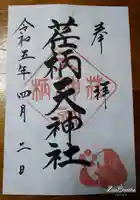 奉拝
荏柄天神社
令和五年四月二日